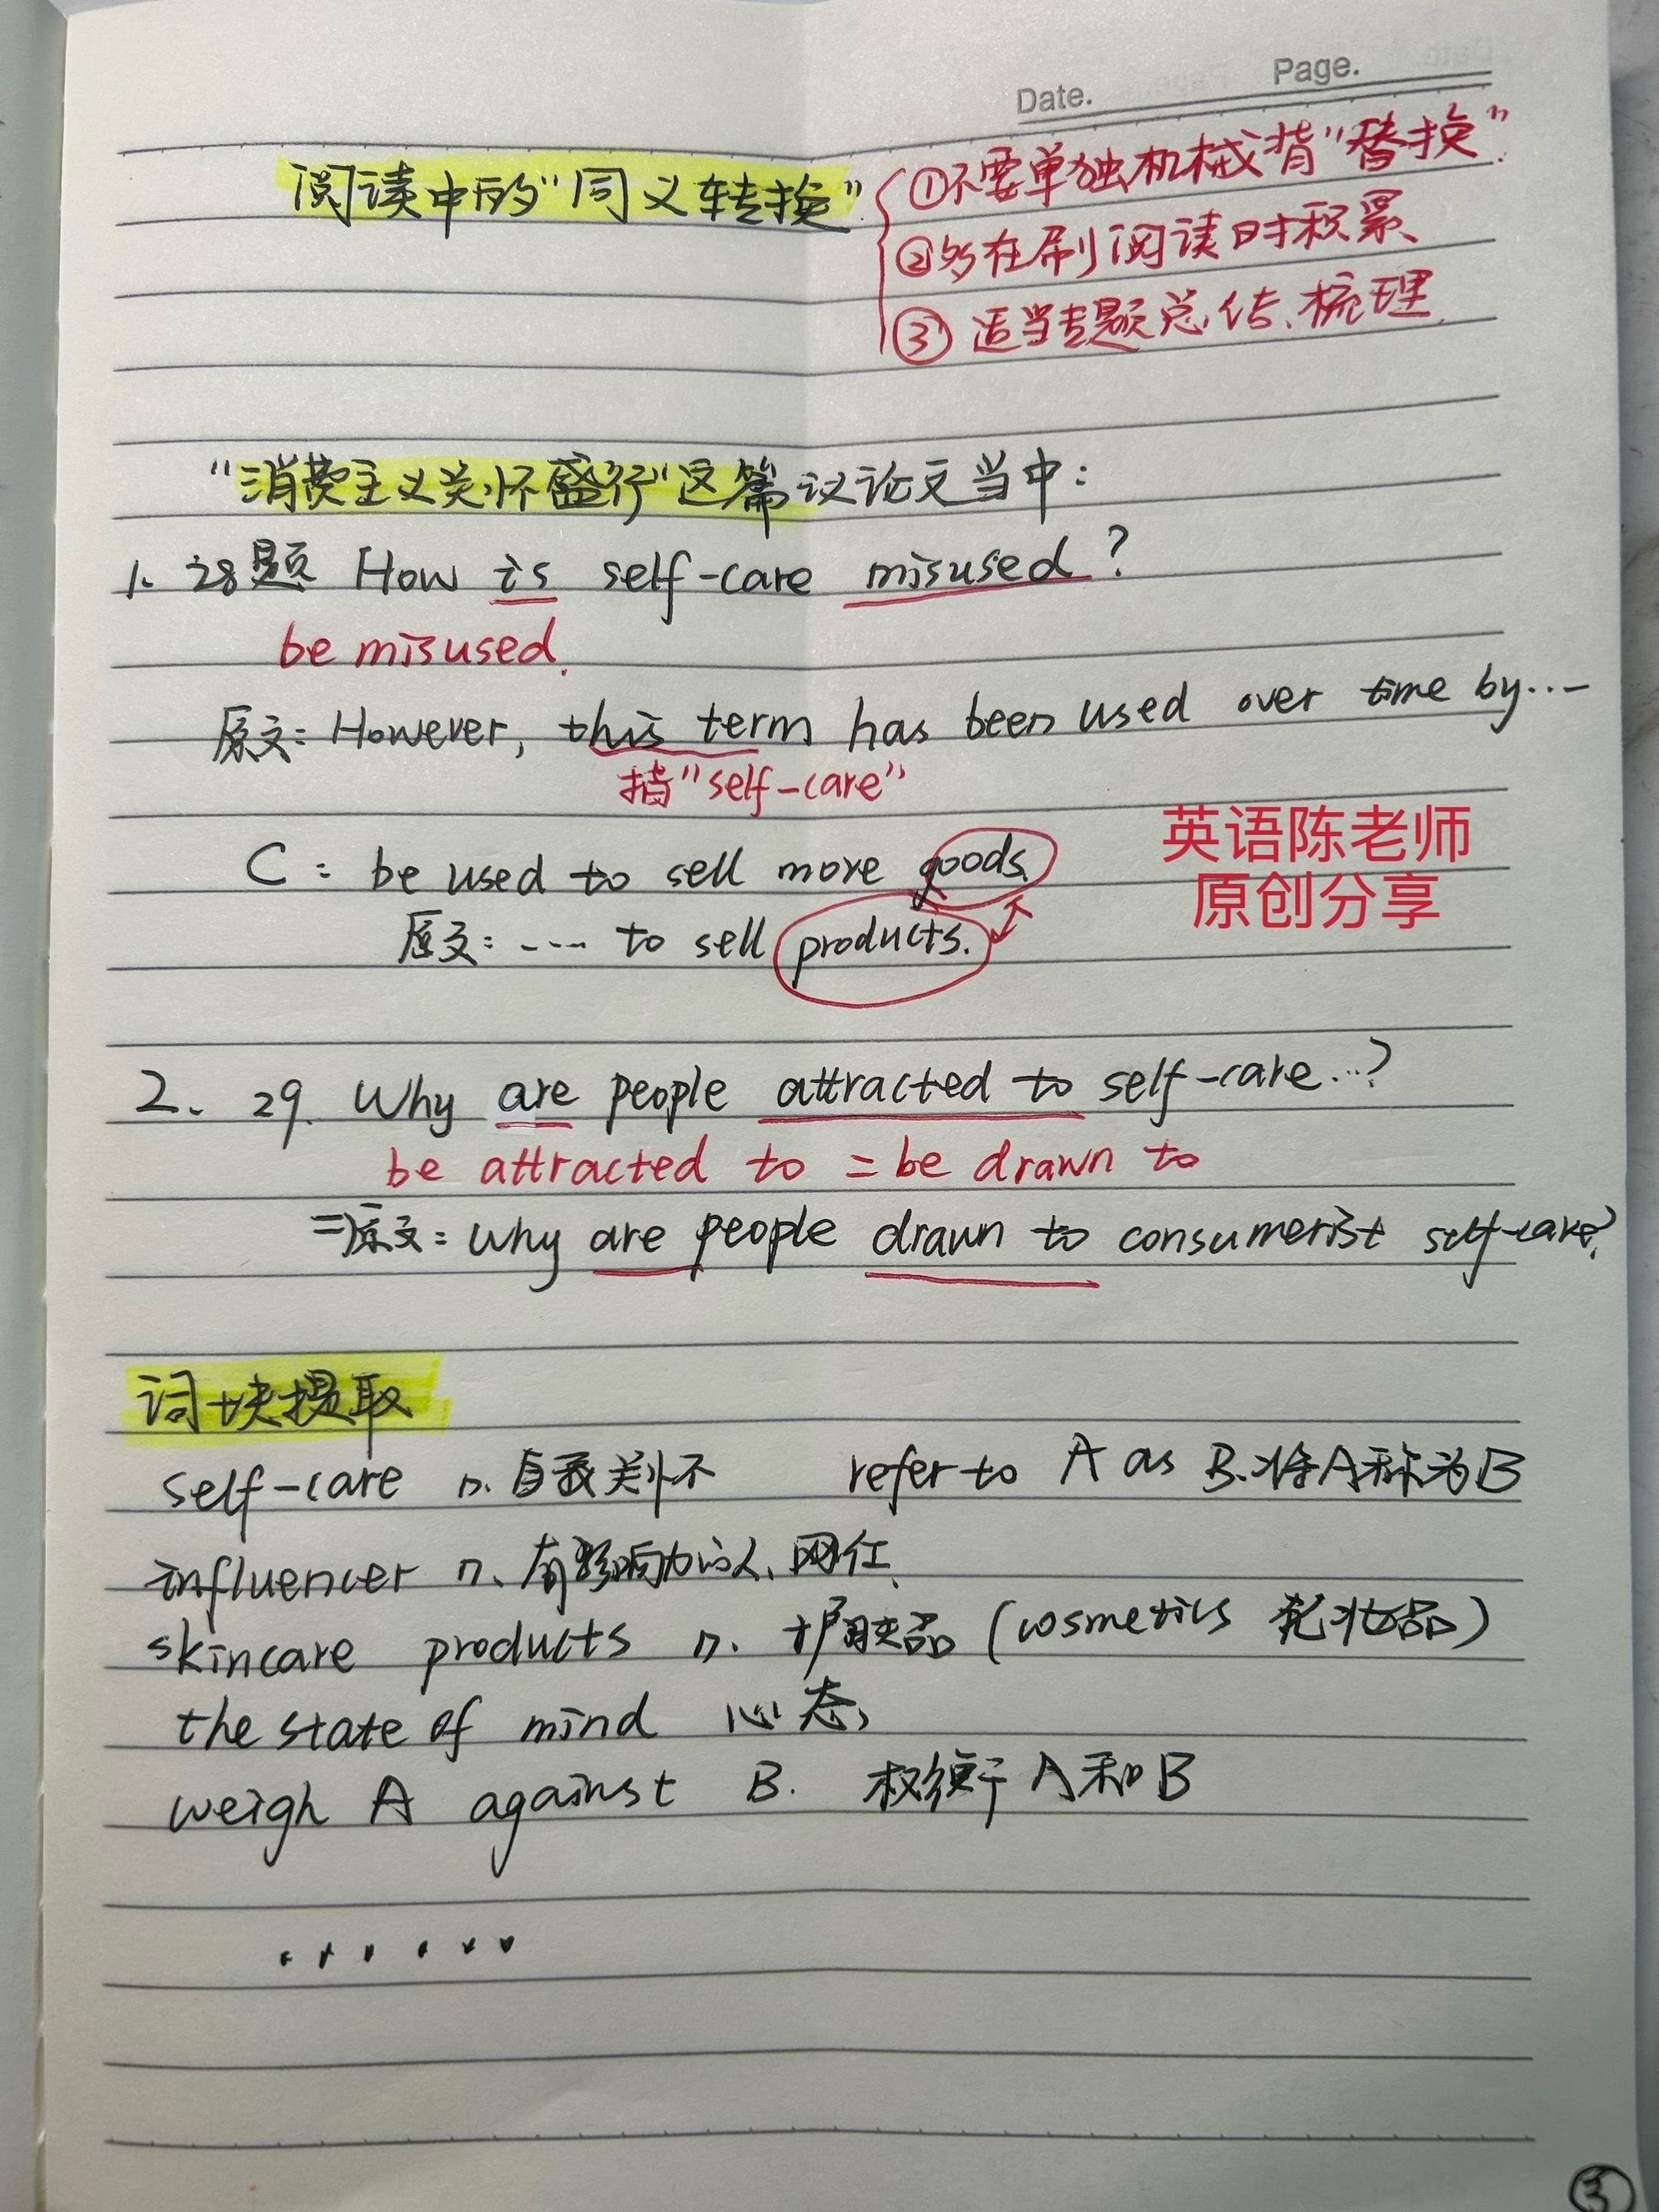 Date. Page.
阅读中的"同义转换"
①不要单独机械背"替换".
②多在刷阅读时积累、
③适当专题总结、梳理.
"消费主义关怀盛行"这篇议论文当中:
1. 28题 How is self-care misused?
be misused.
原文: However, this term has been used over time by...
指"self-care"
C: be used to sell more goods.
英语陈老师
原创分享
原文: .... to sell products.
2. 29. Why are people attracted to self-care...?
be attracted to = be drawn to
⇒原文: Why are people drawn to consumerist self-care?
词块提取
self-care n. 自我关怀 refer to A as B. 将A称为B
influencer n. 有影响力的人、网红.
skincare products n. 护肤品 (cosmetics 化妆品)
the state of mind 心态,
weigh A against B. 权衡 A和B
......
③